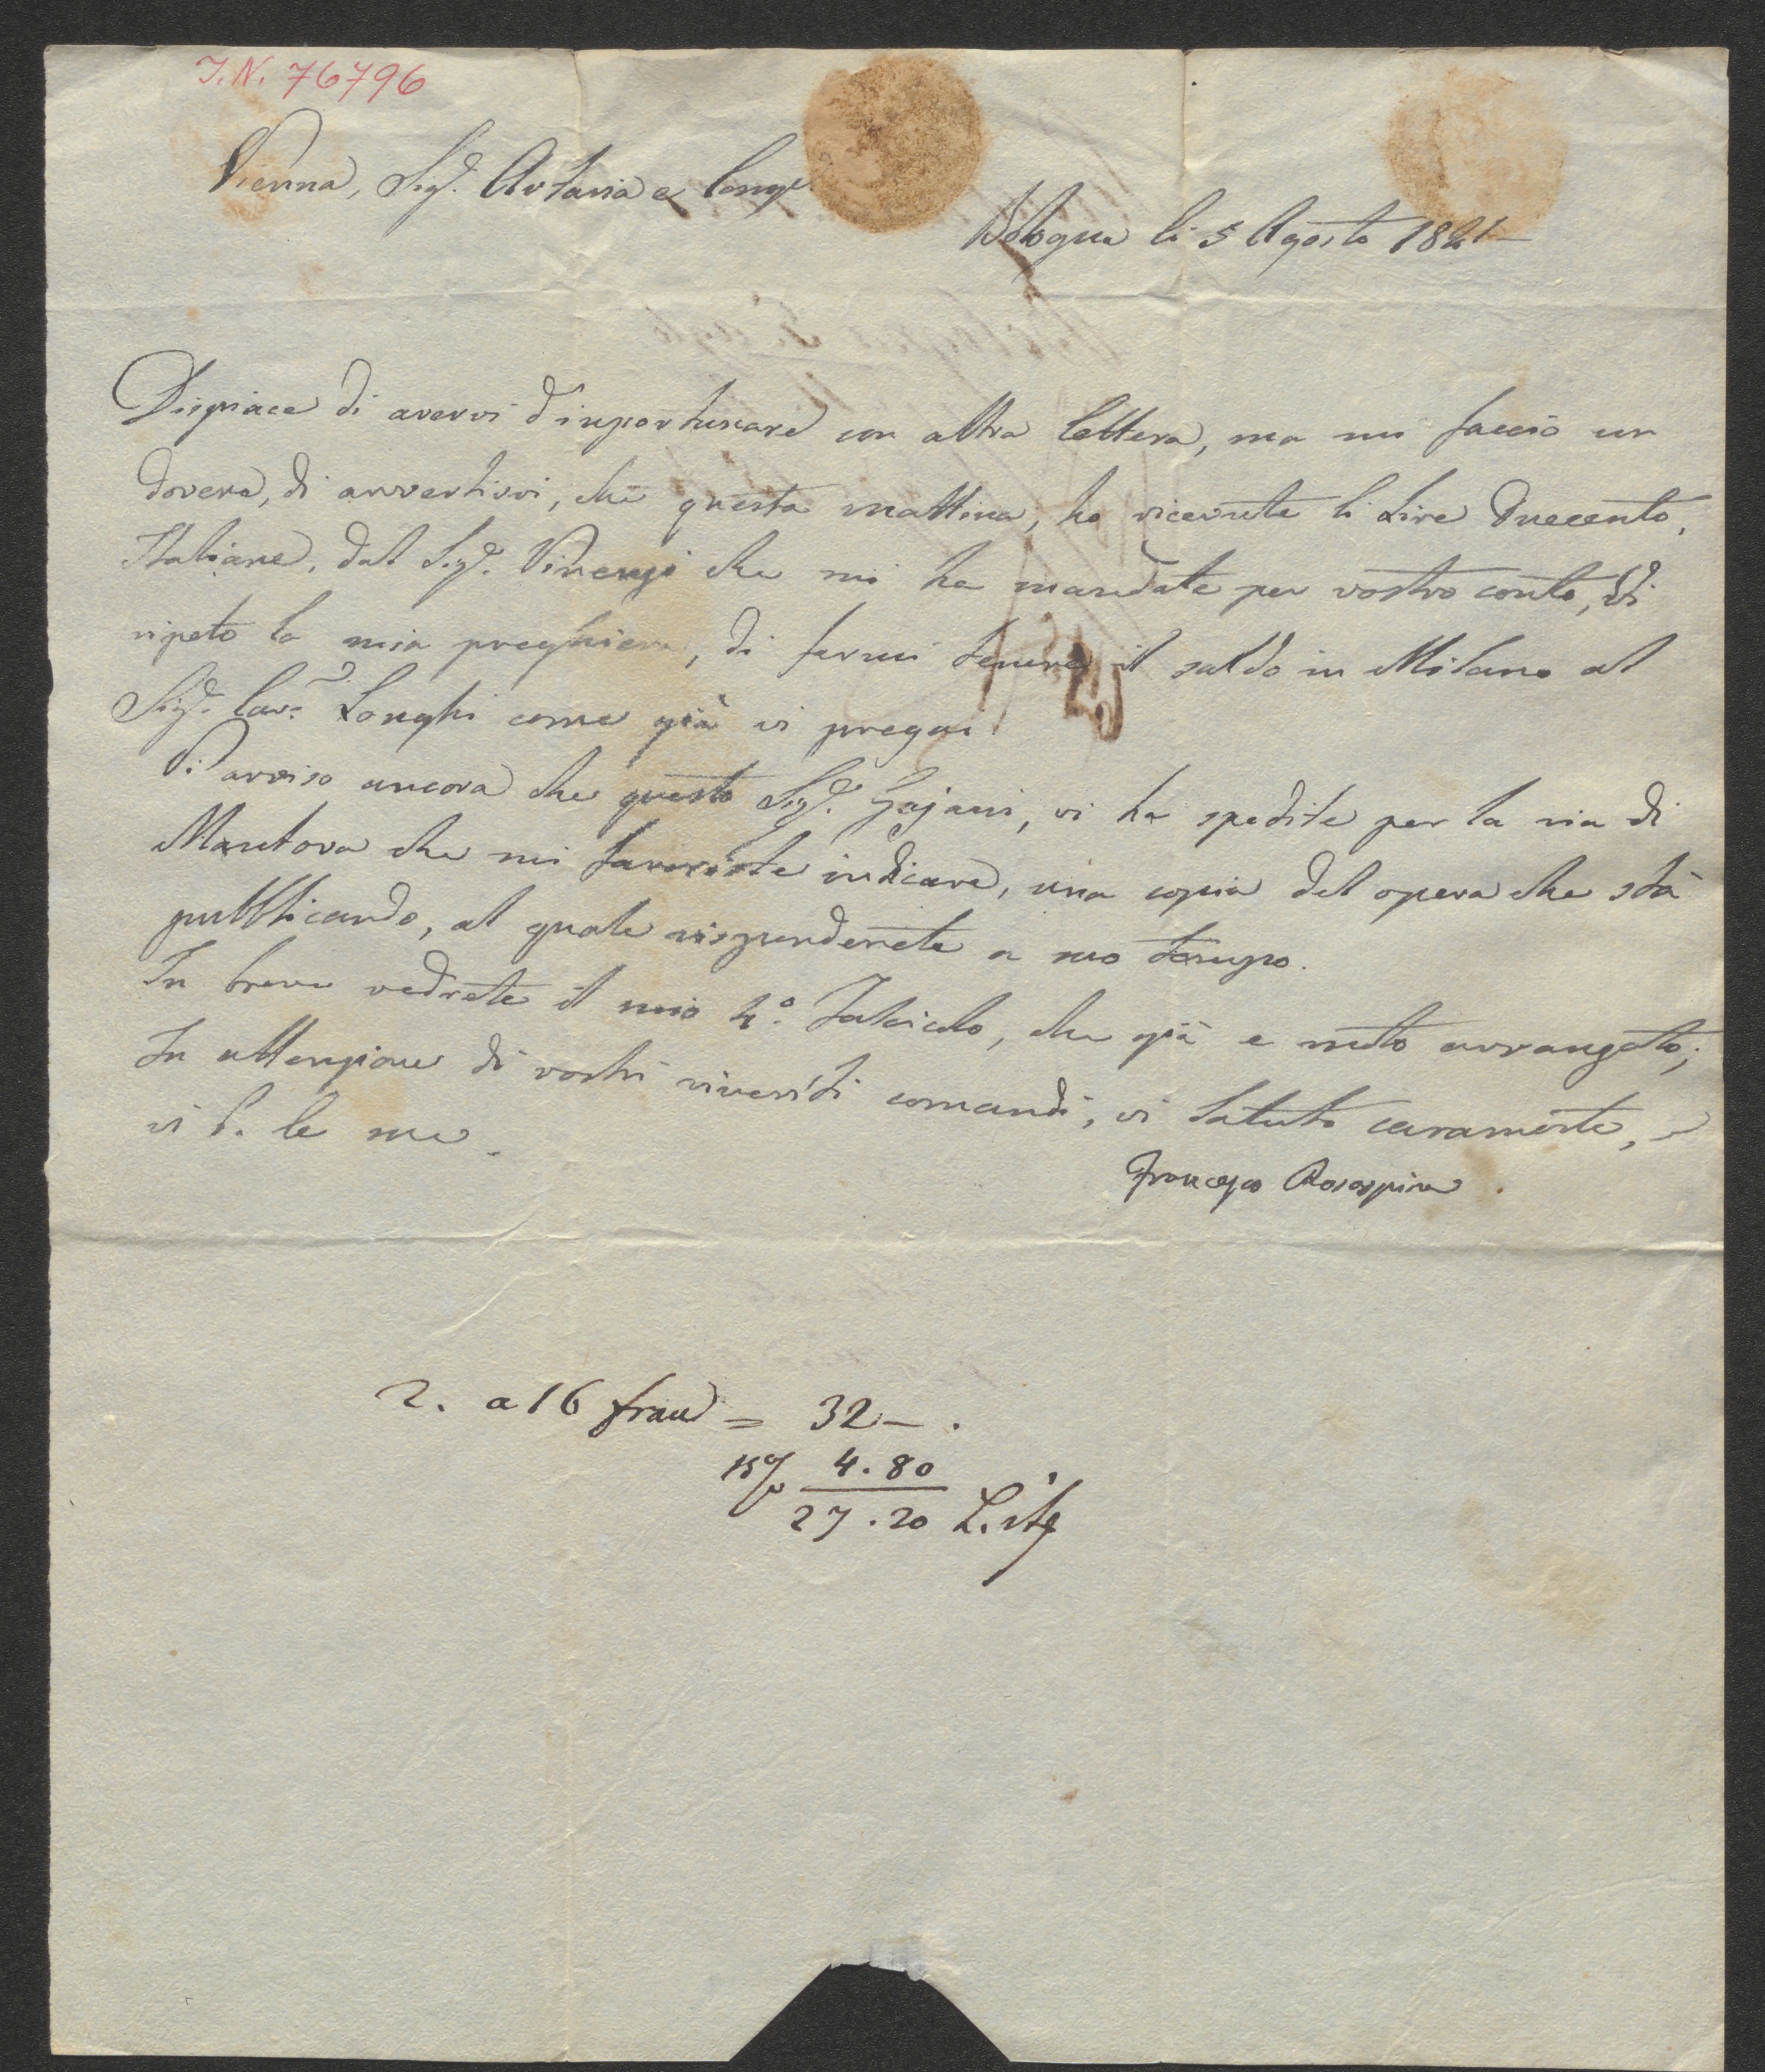 I.N. 76796
Vienna, Sigri. Artaria e Compi.
Bologna li 5 Agosto 1821
Dispiace di avervi d'inportunare con altra lettera, ma mi faccio un
dovere, di avvertirvi, che questa mattina, ho ricevute li Lire Duecento,
Italiane, dal Sigr. Vinenzi che mi ha mandate per vostro conto, Vi
ripeto la mia preghiera, di farmi tenere il saldo in Milano al
Sigr. Cave. Longhi come già vi pregai.
Vi avviso ancora che questo Sigr. Gajani, vi ha spedite per la via di
Mantova che mi favoriste indicare, una copia del opera che stà
pubblicando, al quale risponderete a suo tempo.
In breve vedrete il mio 4.º Falcicolo, che già e molto avvanzato;
In attenzione di vostri riveriti comandi, vi saluto caramente, e
vi b. le me.
Francesco Rosaspina.
2. a 16 franc = 32 – .
15% 4.80
27.20 L. ite